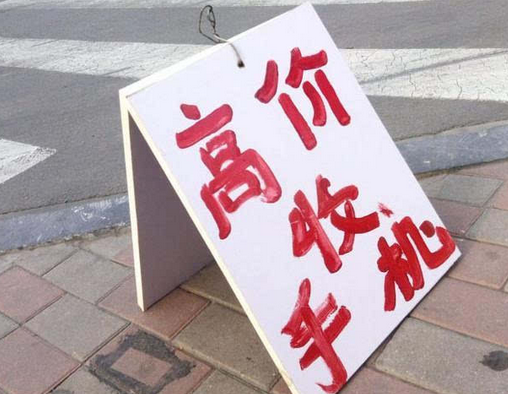 高价
收
手机